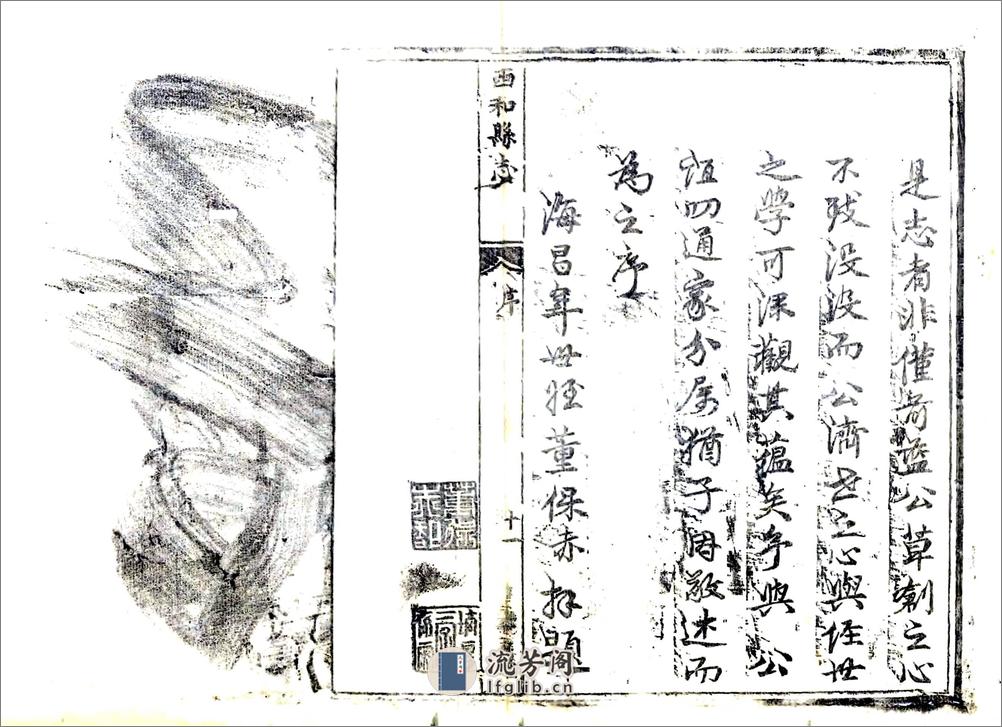 是志者非僅爲藍公草創之心
不致没没而公濟世之心與經世
之學可深觀其蘊矣予與公
恒四通家分屬猶子固敬述而
為之序
海昌年世姪董保赤拜題
西和縣志
序
十一
流芳阁
lfglib.cn